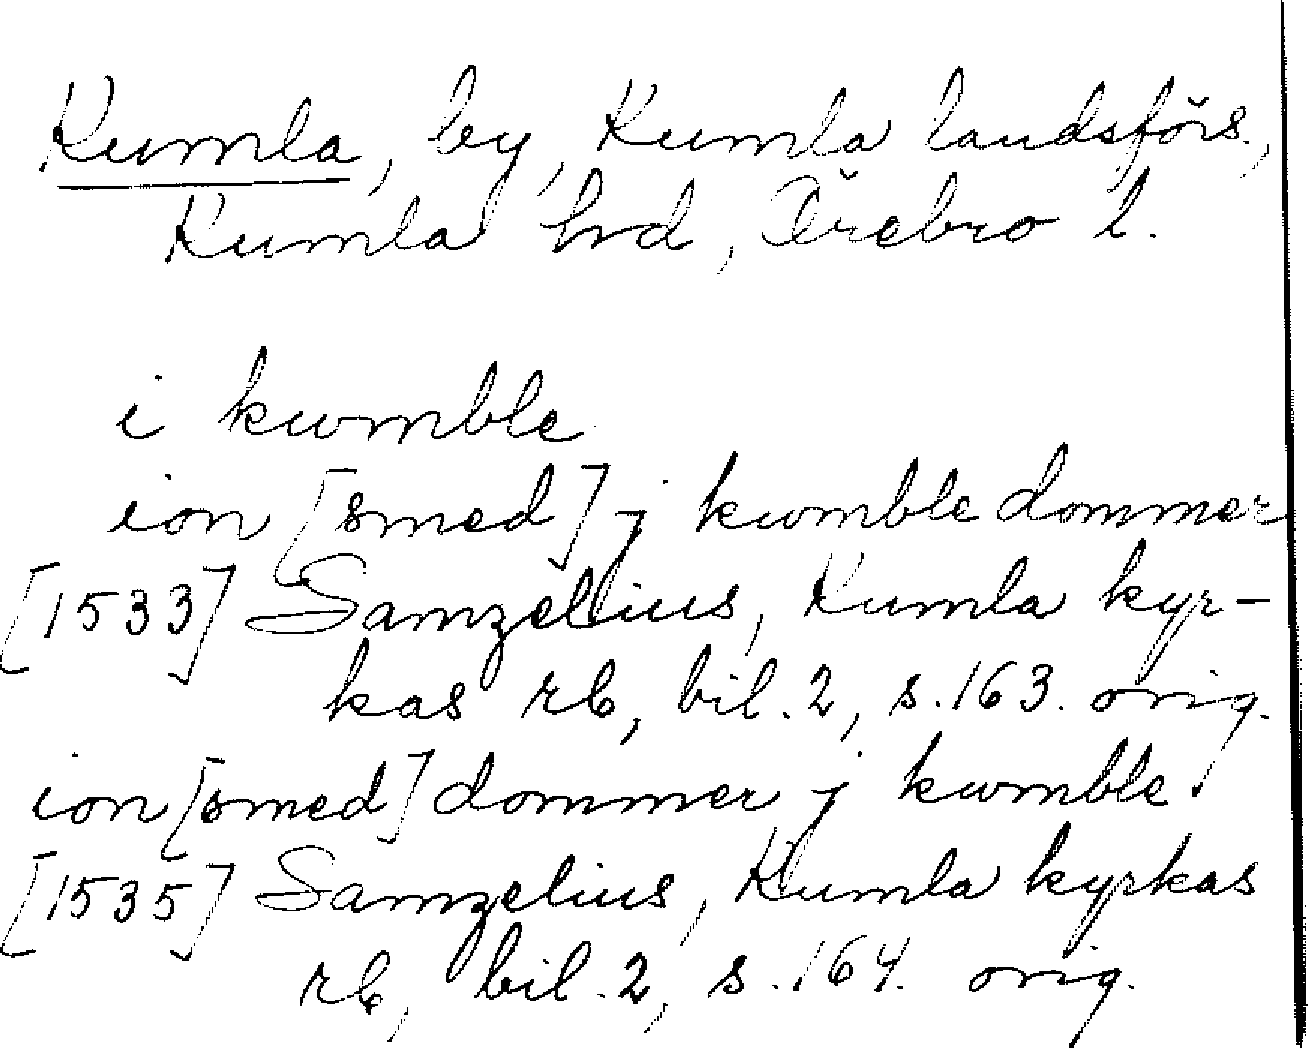 Kumla, by, Kumla landsförs.,
Kumla hrd, Örebro l.
i kwmble
ion [smed] j kwmble dommer
[1533] Samzelius, Kumla kyr-
kas rb, bil. 2, s. 163. orig.
ion [smed] dommer j kwmble
[1535] Samzelius, Kumla kyrkas
rb, bil. 2, s. 164. orig.